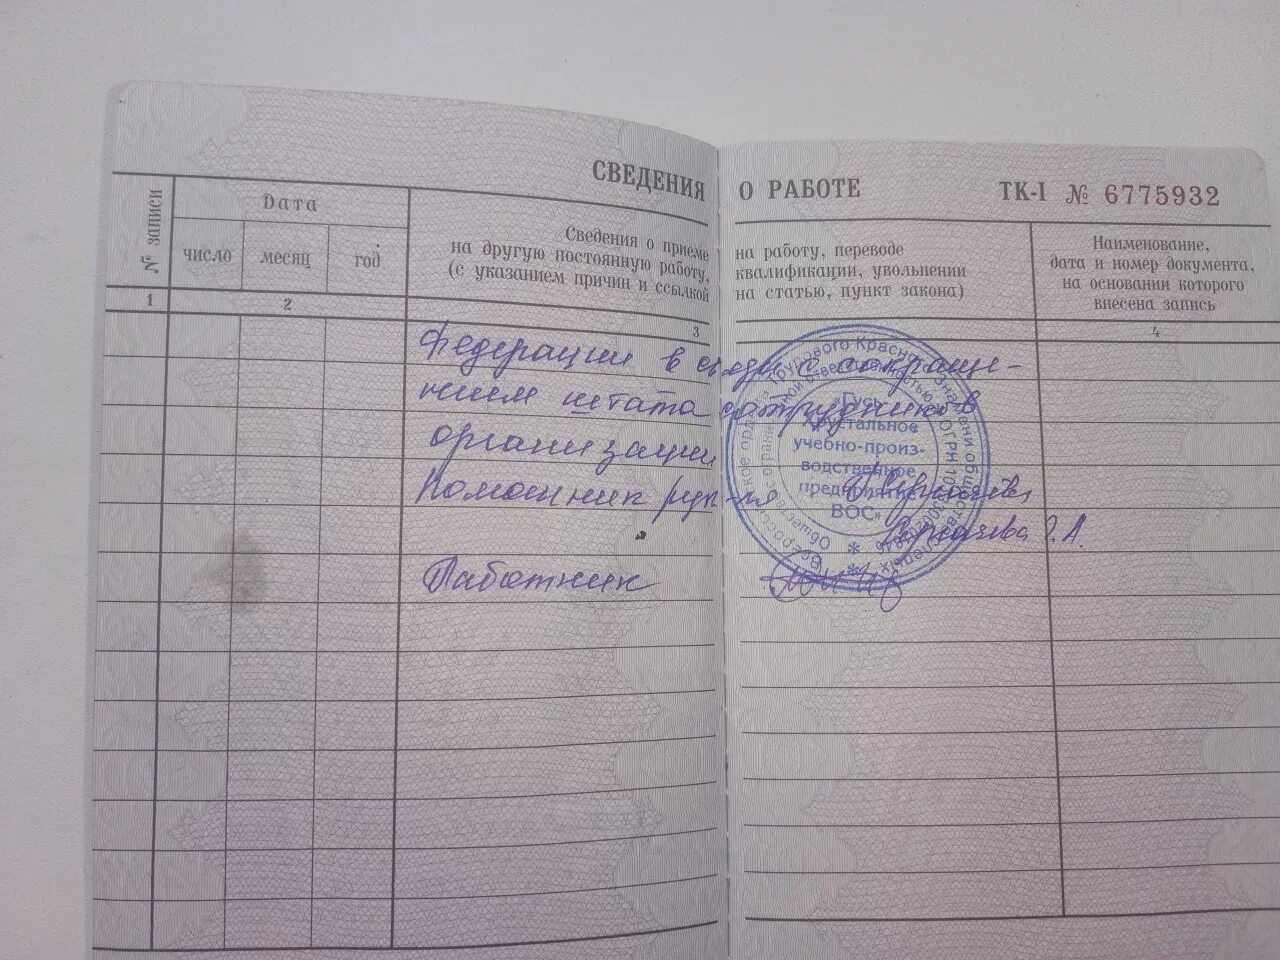 СВЕДЕНИЯ О РАБОТЕ ТК-I № 6775932
№ записи
Дата
число месяц год
Сведения о приеме на работу, переводе
на другую постоянную работу, квалификации, увольнении
(с указанием причин и ссылкой на статью, пункт закона)
Наименование,
дата и номер документа,
на основании которого
внесена запись
1 2 3 4
Федерации в связи с сокраще-
нием штата сотрудников
организации
Помощник рук-ля
Сергачева Г.А.
Работник
«Гусь-
Хрустальное
учебно-произ-
водственное
предприятие
ВОС»